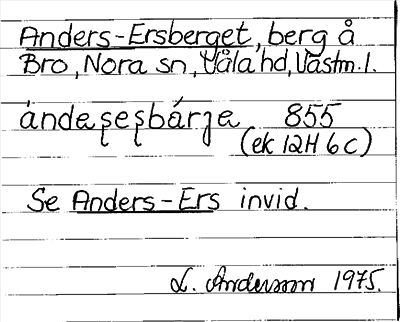 Anders-Ersberget, berg å
Bro, Nora sn, Våla hd, Västm. l.
ándaʂeʂbárja 855
(ek 12H 6c)
Se Anders-Ers invid.
L. Anderson 1975.